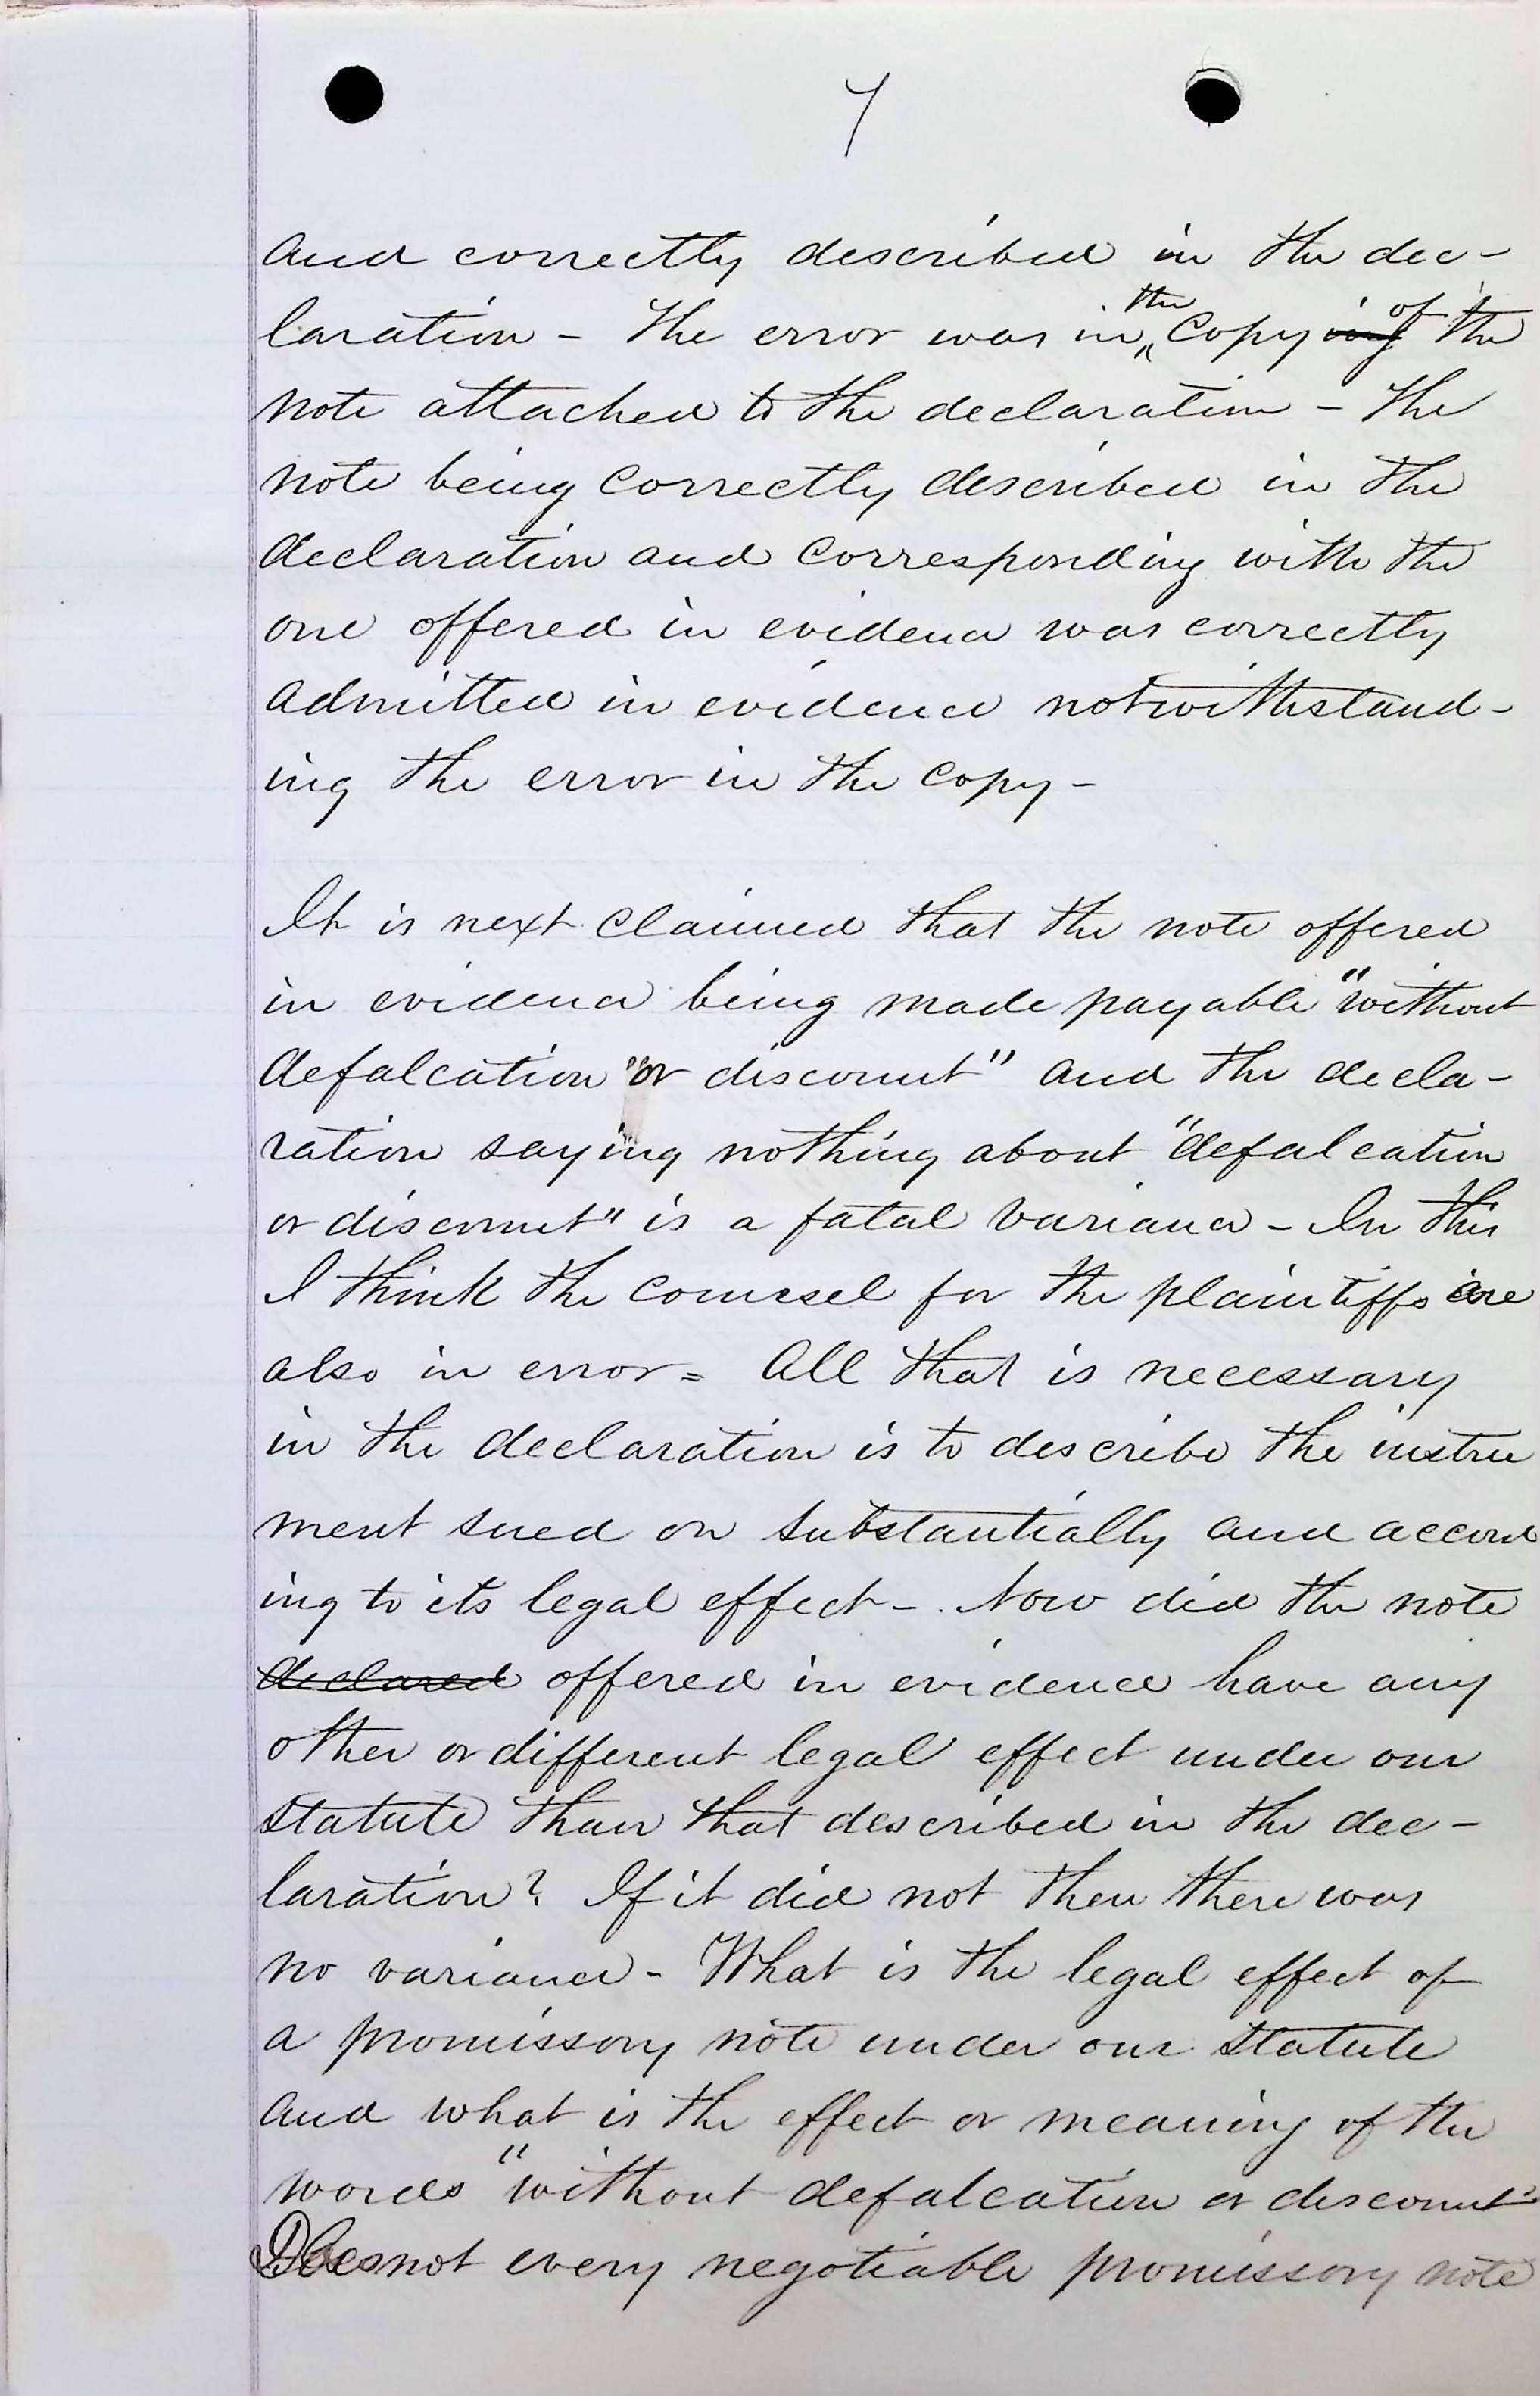 7
and correctly described in the dec-
laration - The error was in the Copy ing of the
note attached to the declaration - The
note being correctly described in the
declaration and corresponding with the
one offered in evidence was correctly
admitted in evidence notwithstand-
ing the error in the copy -
It is next claimed that the note offered
in evidence being made payable "without
defalcation "or discount" and the decla-
ration saying nothing about "defalcation
or discount" is a fatal variance - In this
I think the counsel for the plaintiffs are
also in error = All that is necessary
in the declaration is to describe the instru
ment sued on substantially and accord
ing to its legal effect - Now did the note
declared offered in evidence have any
other or different legal effect under our
statute than that described in the dec-
laration? If it did not then there was
no variance - What is the legal effect of
a promissory note under our statute
and what is the effect or meaning of the
words "without defalcation or discount"
Does not every negotiable promissory note